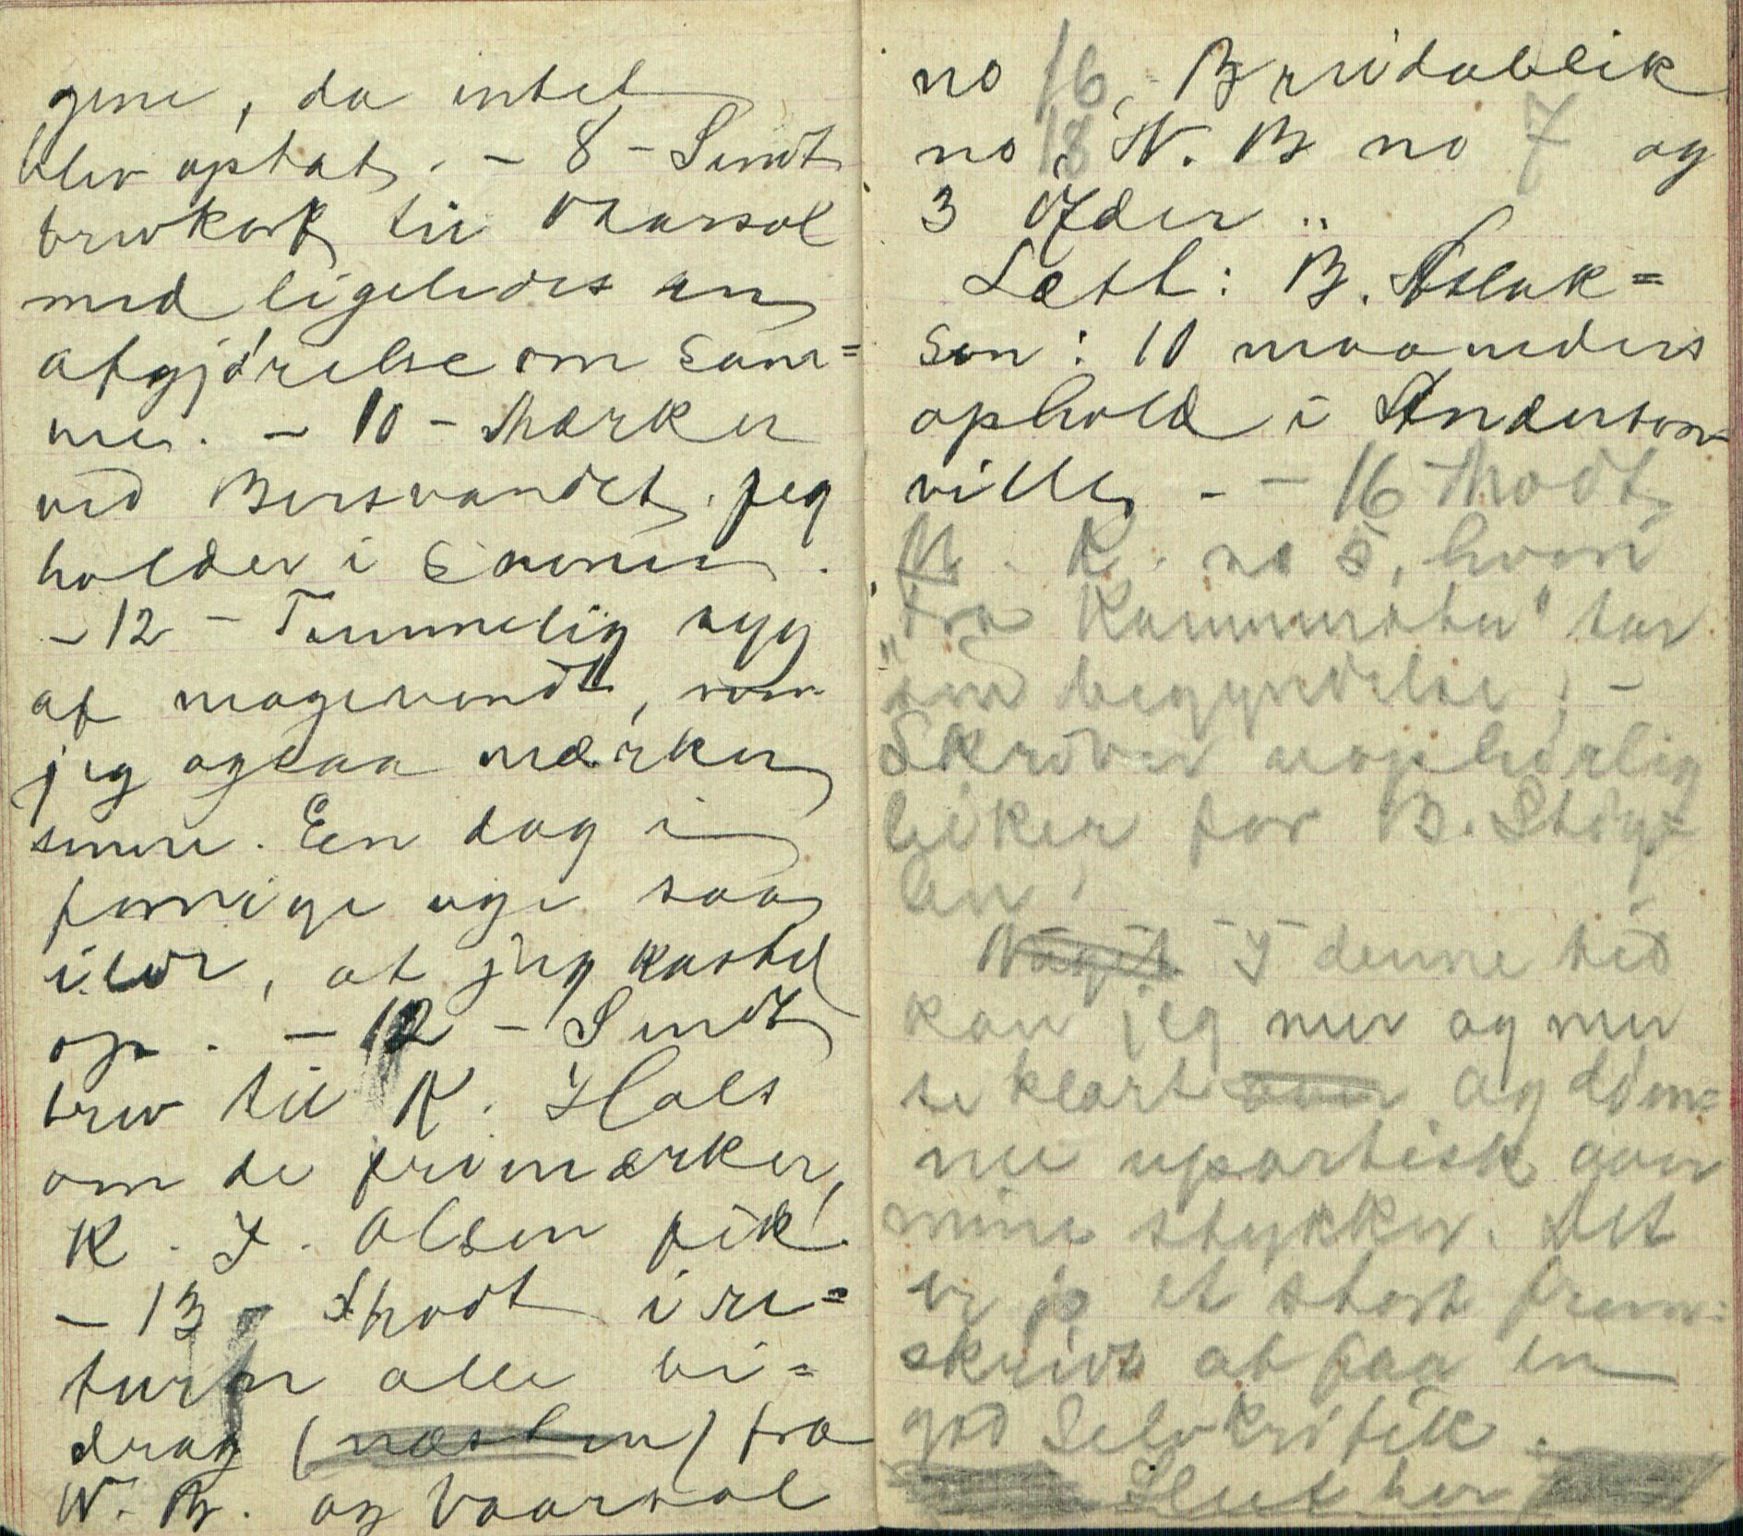 gene, da intet
blev optat. - 8 - Sendt
brevkort til Vaarsol
med ligeledes en
afgjørelse om sam=
me. - 10 - Mærker
ved Bersvandet jeg
holder i
- 12 - Temmelig syg
af magerondt, som
jeg ogsaa mærker
senere. Een dag i
forrige uge saa
ilde, at jeg kasted
op. - 12 - Sendt
brev til K. Hals
om de frimærker,
K. J. Olsen fik.
- 13 - Modt i re=
turen alle bi=
drag (næsten) fra
N. B. og Vaarsol
no 16, Breidablik
no 18, N. B no 7 og
3 Æfder "
Læst: B. Aslak=
son: 10 maaneders
ophold i Anderson-
ville. - - 16 Modt
M. K. no 5, hvori
"Fra Kammerater" tar
sin begyndelse! -
Skriver uophørlig
leiker for B. Støy=
len!
Noget - I denne tid
kan jeg mer og mer
se klart over og døm=
me upartisk over
mine stykker. Det
er jo et stort frem=
skridt at faa en
god selvkritik.
Slut her